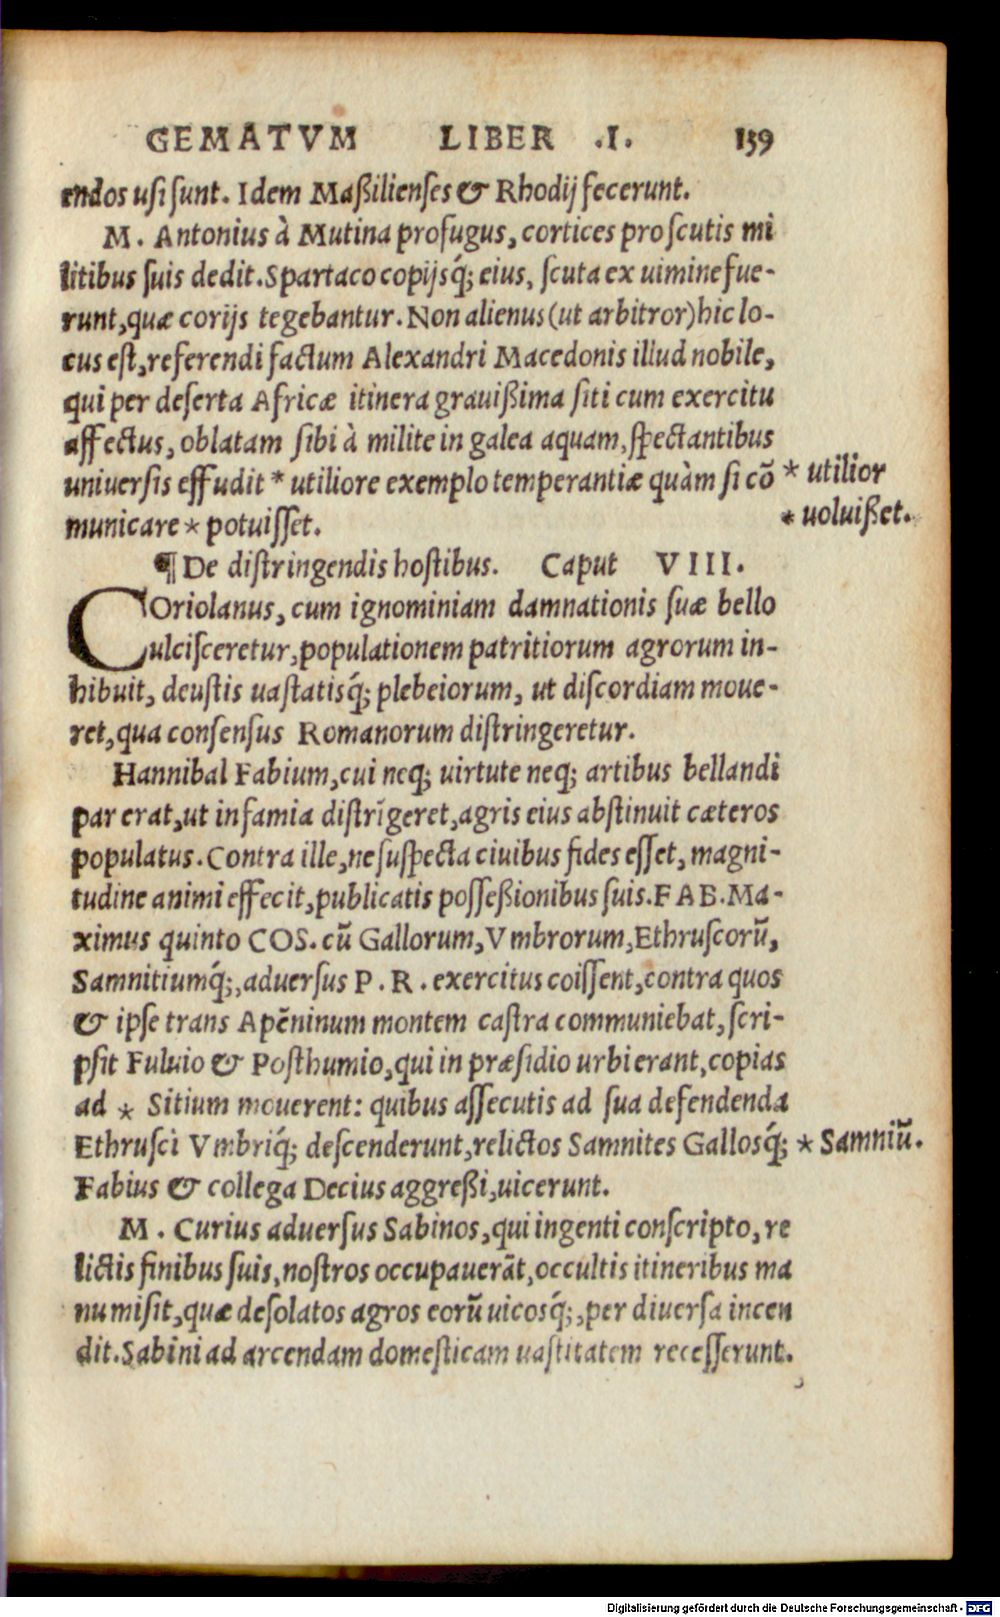 GEMATVM LIBER .I. 159
endos usi sunt. Idem Maßilienses & Rhodij fecerunt.
M. Antonius à Mutina profugus, cortices pro scutis mi
litibus suis dedit. Spartaco copijsq́; eius, scuta ex uimine fue-
runt, quæ corijs tegebantur. Non alienus (ut arbitror) hic lo-
cus est, referendi factum Alexandri Macedonis illud nobile,
qui per deserta Africæ itinera grauißima siti cum exercitu
affectus, oblatam sibi à milite in galea aquam, spectantibus
uniuersis effudit * utiliore exemplo temperantiæ quàm si cõ * utilior
municare * potuisset. * uoluißet.
¶ De distringendis hostibus. Caput VIII.
COriolanus, cum ignominiam damnationis suæ bello
ulcisceretur, populationem patritiorum agrorum in-
hibuit, deustis uastatisq́; plebeiorum, ut discordiam moue-
ret, qua consensus Romanorum distringeretur.
Hannibal Fabium, cui neq; uirtute neq; artibus bellandi
par erat, ut infamia distrĩgeret, agris eius abstinuit cæteros
populatus. Contra ille, ne suspecta ciuibus fides esset, magni-
tudine animi effecit, publicatis possessionibus suis. FAB. Ma-
ximus quinto COS. cũ Gallorum, Vmbrorum, Ethruscorũ,
Samnitiumq́;, aduersus P. R. exercitus coissent, contra quos
& ipse trans Apẽninum montem castra communiebat, scri-
psit Fuluio & Posthumio, qui in præsidio urbi erant, copias
ad * Sitium mouerent: quibus assecutis ad sua defendenda
Ethrusci Vmbriq́; descenderunt, relictos Samnites Gallosq́; * Samniũ.
Fabius & collega Decius aggreßi, uicerunt.
M. Curius aduersus Sabinos, qui ingenti conscripto, re
lictis finibus suis, nostros occupauerãt, occultis itineribus ma
nu misit, quæ desolatos agros eorũ uicosq́;, per diuersa incen
dit. Sabini ad arcendam domesticam uastitatem recesserunt.
Digitalisierung gefördert durch die Deutsche Forschungsgemeinschaft - DFG